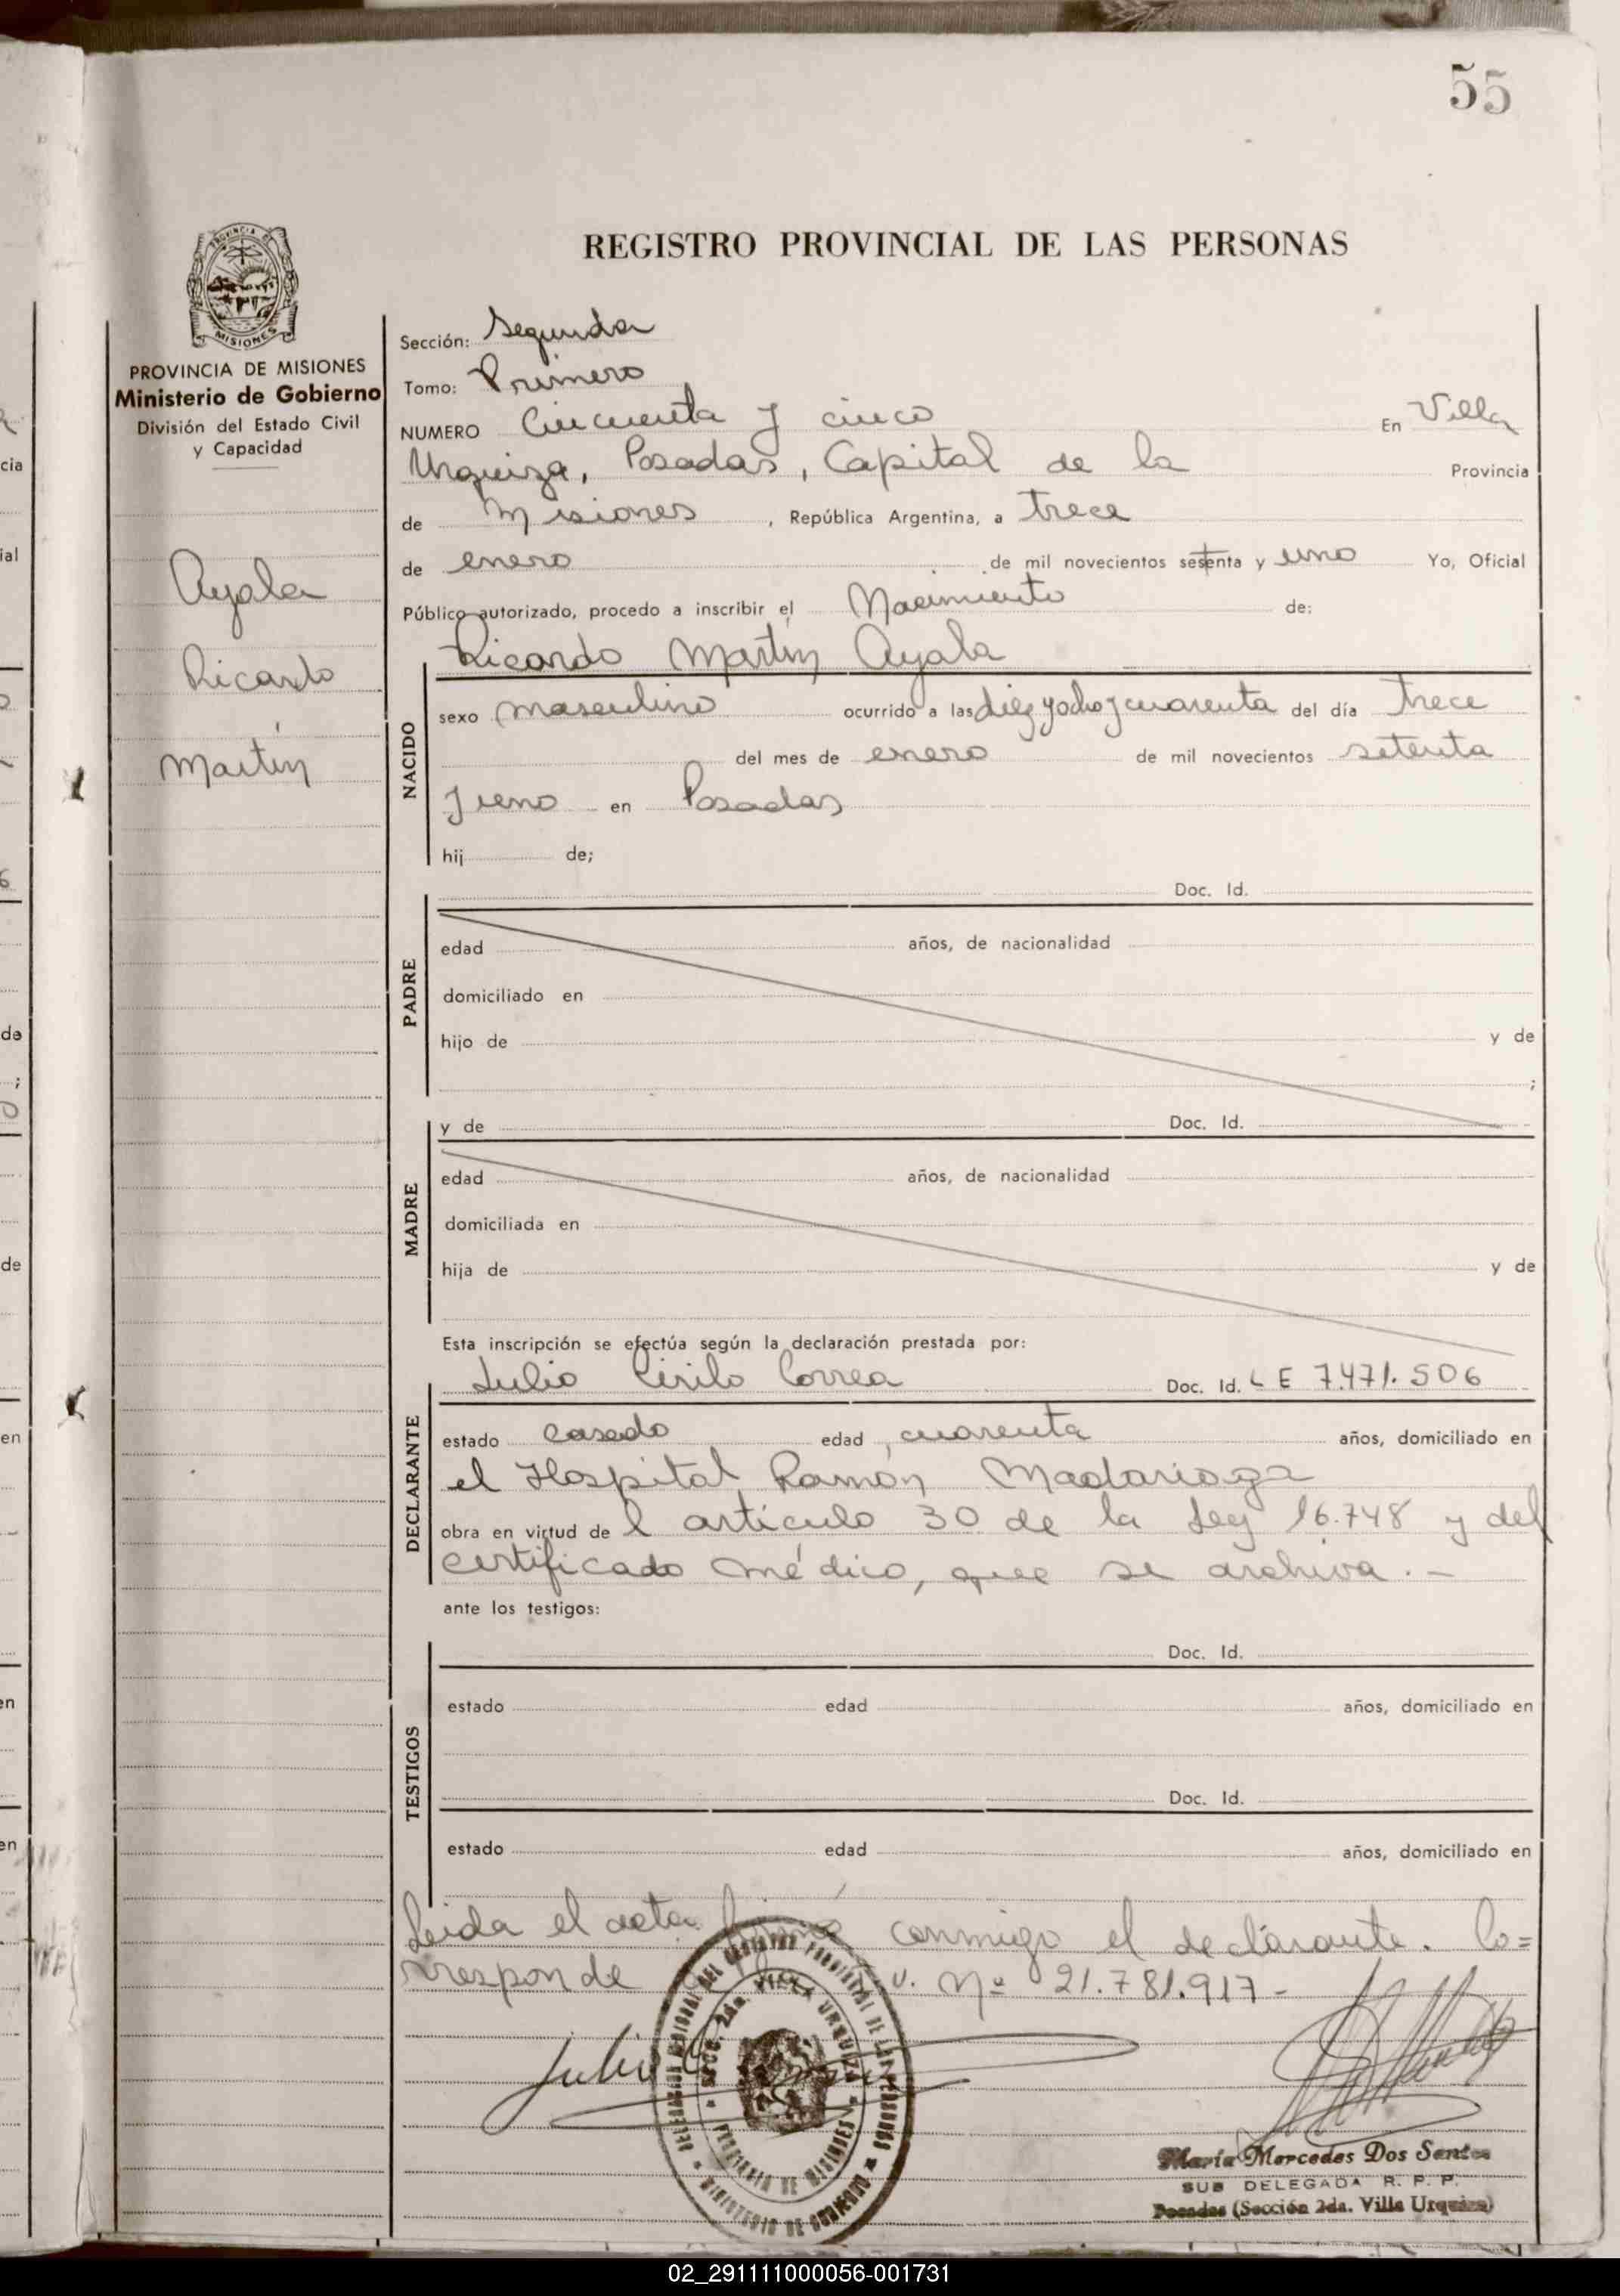 55
REGISTRO PROVINCIAL DE LAS PERSONAS
PROVINCIA DE MISIONES
Ministerio de Gobierno
División del Estado Civil
y Capacidad
Ayala
Ricardo
Martín
Sección: Segunda
Tomo: Primero
NUMERO Cincuenta y cinco En Villa
Urquiza, Posadas, Capital de la Provincia
de Misiones, República Argentina, a trece
de enero de mil novecientos setenta y uno Yo, Oficial
Público autorizado, procedo a inscribir el Nacimiento de:
Ricardo Martín Ayala
NACIDO
sexo masculino ocurrido a las diez y ocho y cuarenta del día trece
del mes de enero de mil novecientos setenta
y uno en Posadas
hij de;
Doc. Id.
PADRE
edad años, de nacionalidad
domiciliado en
hijo de y de
;
y de Doc. Id.
MADRE
edad años, de nacionalidad
domiciliada en
hija de y de
Esta inscripción se efectúa según la declaración prestada por:
Julio Cirilo Correa Doc. Id. L E 7.471.506
DECLARANTE
estado casado edad cuarenta años, domiciliado en
el Hospital Ramón Madariaga
obra en virtud de l artículo 30 de la Ley 16.748 y del
certificado médico, que se archiva.-
ante los testigos:
Doc. Id.
TESTIGOS
estado edad años, domiciliado en
Doc. Id.
estado edad años, domiciliado en
Leida el acta firmó conmigo el declarante. Co=
rresponde U. Nº 21.781.917-
Julio
SECC. 2da. VILLA URQUIZA
PROVINCIA DE MISIONES
MINISTERIO DE GOBIERNO
María Mercedes Dos Santos
SUB DELEGADA R. P. P.
Posadas (Sección 2da. Villa Urquiza)
02_291111000056-001731